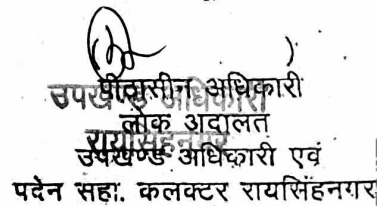 पीठासीन अधिकारी
उपखण्ड अधिकारी
लोक अदालत
रायसिंहनगर
उपखण्ड अधिकारी एवं
पदेन सहा. कलक्टर रायसिंहनगर